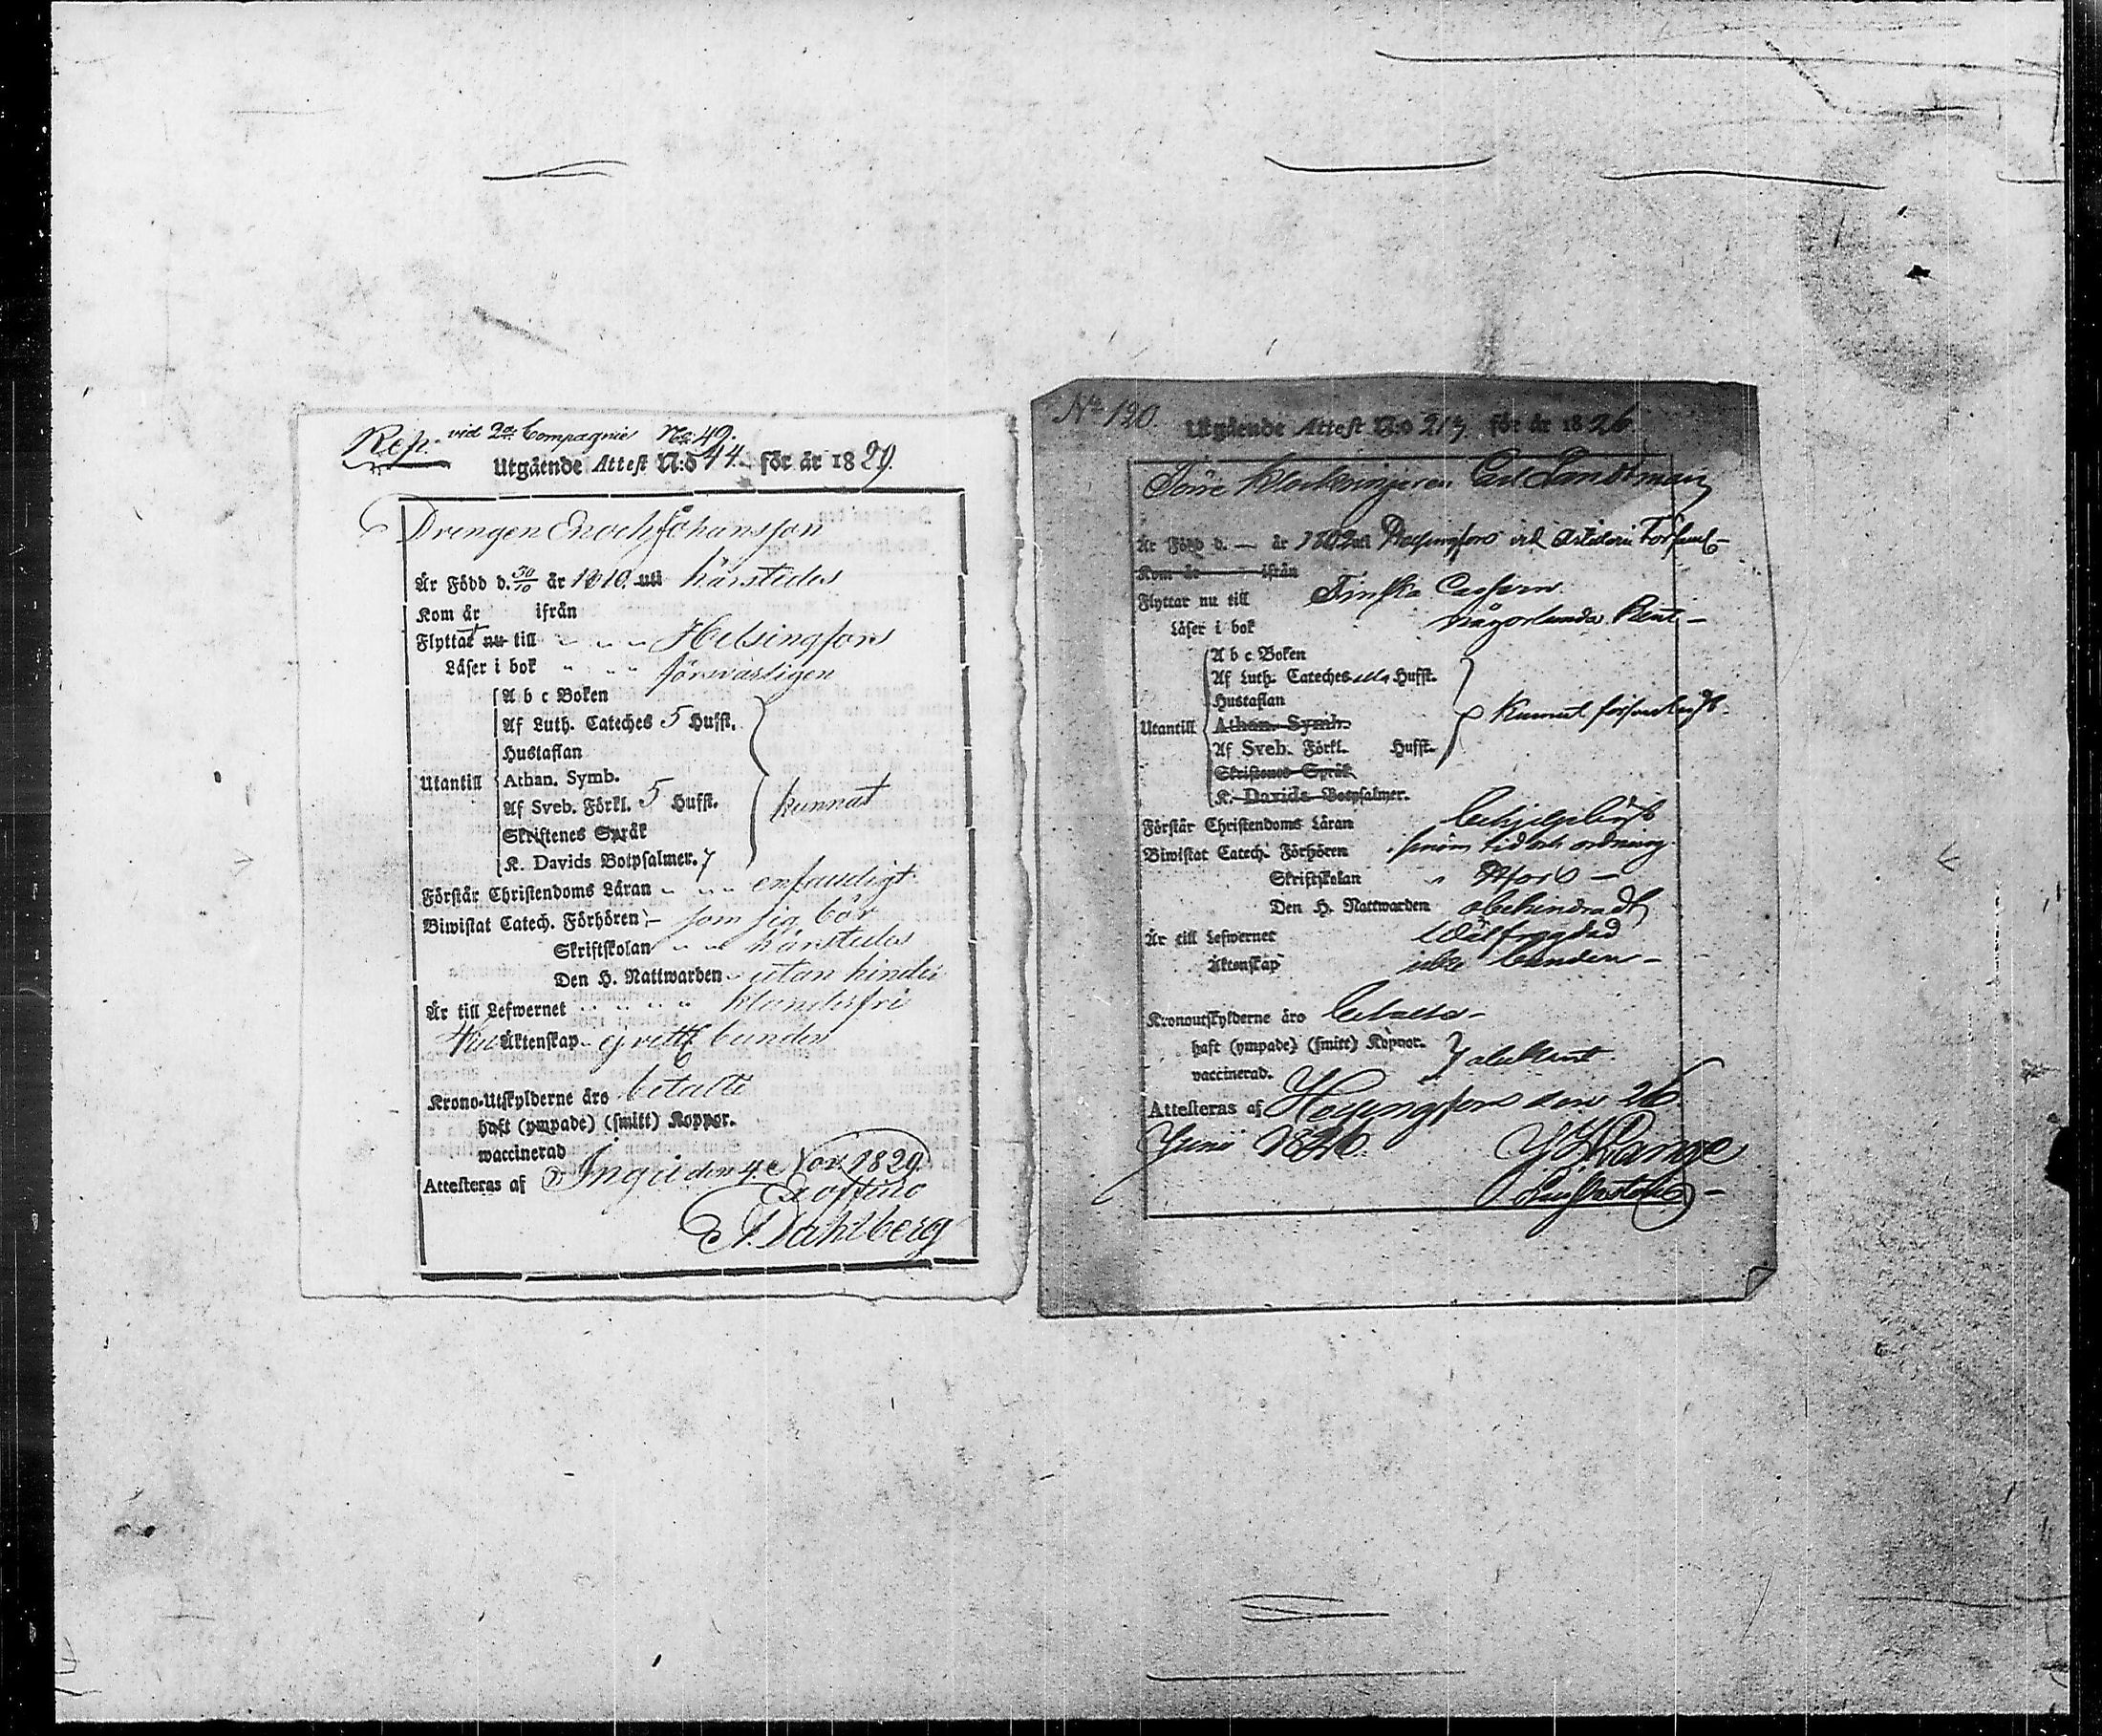 Rep. vid 2a Compagnie No 49.
Utgående Attest N:o 44. för år 1829.
Drengen Enoch Johansson
Är Född d. 30/10 år 1810. uti härstedes
Kom år ifrån
Flyttat nu till " " " Helsingfors
Läser i bok " " " försvarligen
Utantill
A b c Boken
Af Luth. Cateches 5 Hufst.
Hustaflan
Athan. Symb.
Af Sveb. Förkl. 5 Hufst.
Skriftenes Språk
K. Davids Botpsalmer. 7
kunnat
Förstår Christendoms Läran " " " enfaldigt
Biwistat Catech. Förhören som sig bör
Skriftskolan " " härstedes
Den H. Nattwarden " utan hinder
Är till Lefwernet " " " " klanderfri
Äktenskap ej bunden
Krono-Utskylderne äro betalte
haft (ympade) (smitt) Koppor.
waccinerad
Attesteras af Ingå den 4e Nov. 1829.
Ex officio
A. Dahlberg
No 120. Utgående Attest N:o 213 för år 1826
Förre Klockringaren Carl
Är Född d. — år 1802 uti Helsingfors vid Artilleri Förs
Kom år ifrån
Flyttar nu till Finska
Läser i bok någorlunda Rent —
Utantill
A b c Boken
Af Luth. Cateches Hufst.
Hustaflan
Athan. Symb.
Af Sveb. Förkl. Hufst.
Skriftenes Språk
K. Davids Botpsalmer.
Kunnat försvarligt.
Förstår Christendoms Läran behjelpeligt
Biwistat Catech. Förhören i sinom tid och ordning
Skriftskolan "
Den H. Nattwarden obehindradt
Är till Lefwernet Wälfrägdad
Äktenskap icke bunden —
Kronoutskylderne äro betalda —
haft (ympade) (smitt) Koppor.
vaccinerad. } obekant
Attesteras af Helsingfors den 26
Junii 1826.